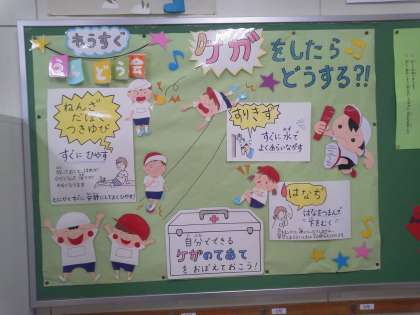 もうすぐ
うんどう会
ケガをしたら
どうする?!
ねんざ
だぼく
つきゆび
すぐに ひやす
すりきず
すぐに水で
よくあらいながす
はなぢ
はなをつまんで
下をむく
自分でできる
ケガのてあて
をおぼえておこう!